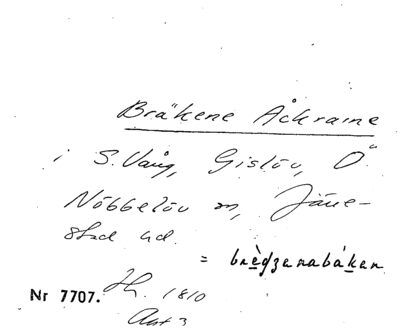 Bräkene Åckrarne
i S. Vång, Gislöv, Ö.
Nöbbelöv sn, Järre-
stad hd.
= brègzanabákan
Nr 7707. Lh. 1810
Akt 3